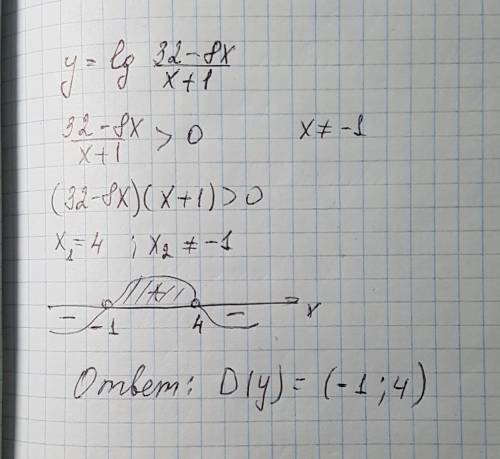 y = lg (32-8x)/(x+1)
(32-8x)/(x+1) > 0 x ≠ -1
(32-8x)(x+1)>0
x₁=4 ; x₂ ≠ -1
- + -
-1 4 x
Ответ: D(y) = (-1; 4)